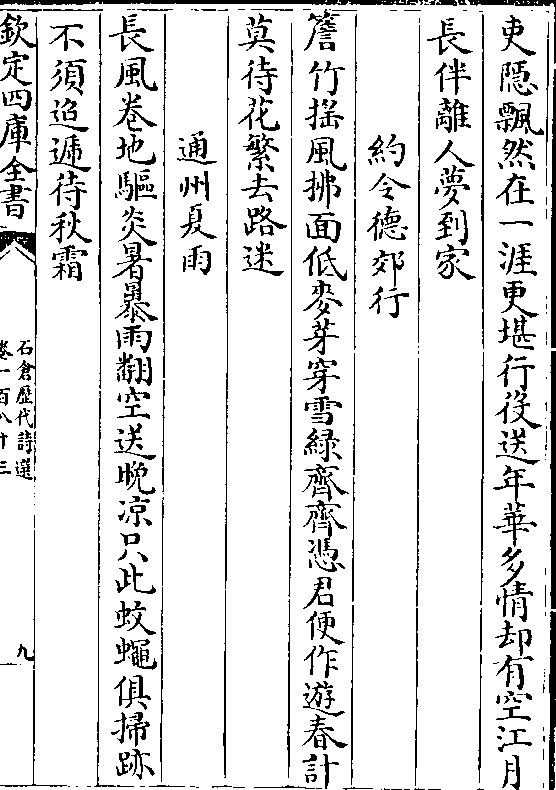 吏隠飄然在一涯更堪行役送年華多情却有空江月
長伴離人夢到家
約令德郊行
簷竹揺風拂面低麥芽穿雪緑齊齊憑君便作遊春計
莫待花繁去路迷
通州夏雨
長風卷地驅炎暑暴雨翻空送晚凉只此蚊蠅俱掃跡
不須迢遞待秋霜
欽定四庫全書
石倉歴代詩選
卷一百八十三
九